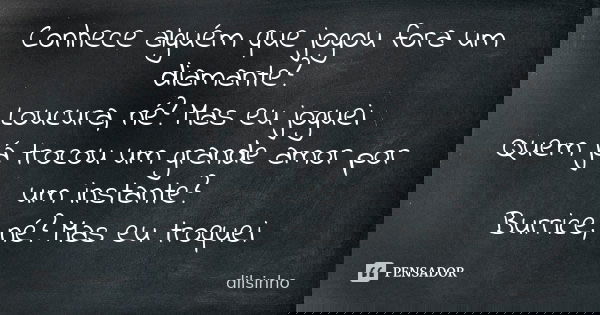 Conhece alguém que jogou fora um
diamante?
Loucura, né? Mas eu joguei
Quem já trocou um grande amor por
um instante?
Burrice, né? Mas eu troquei
PENSADOR
dilsinho